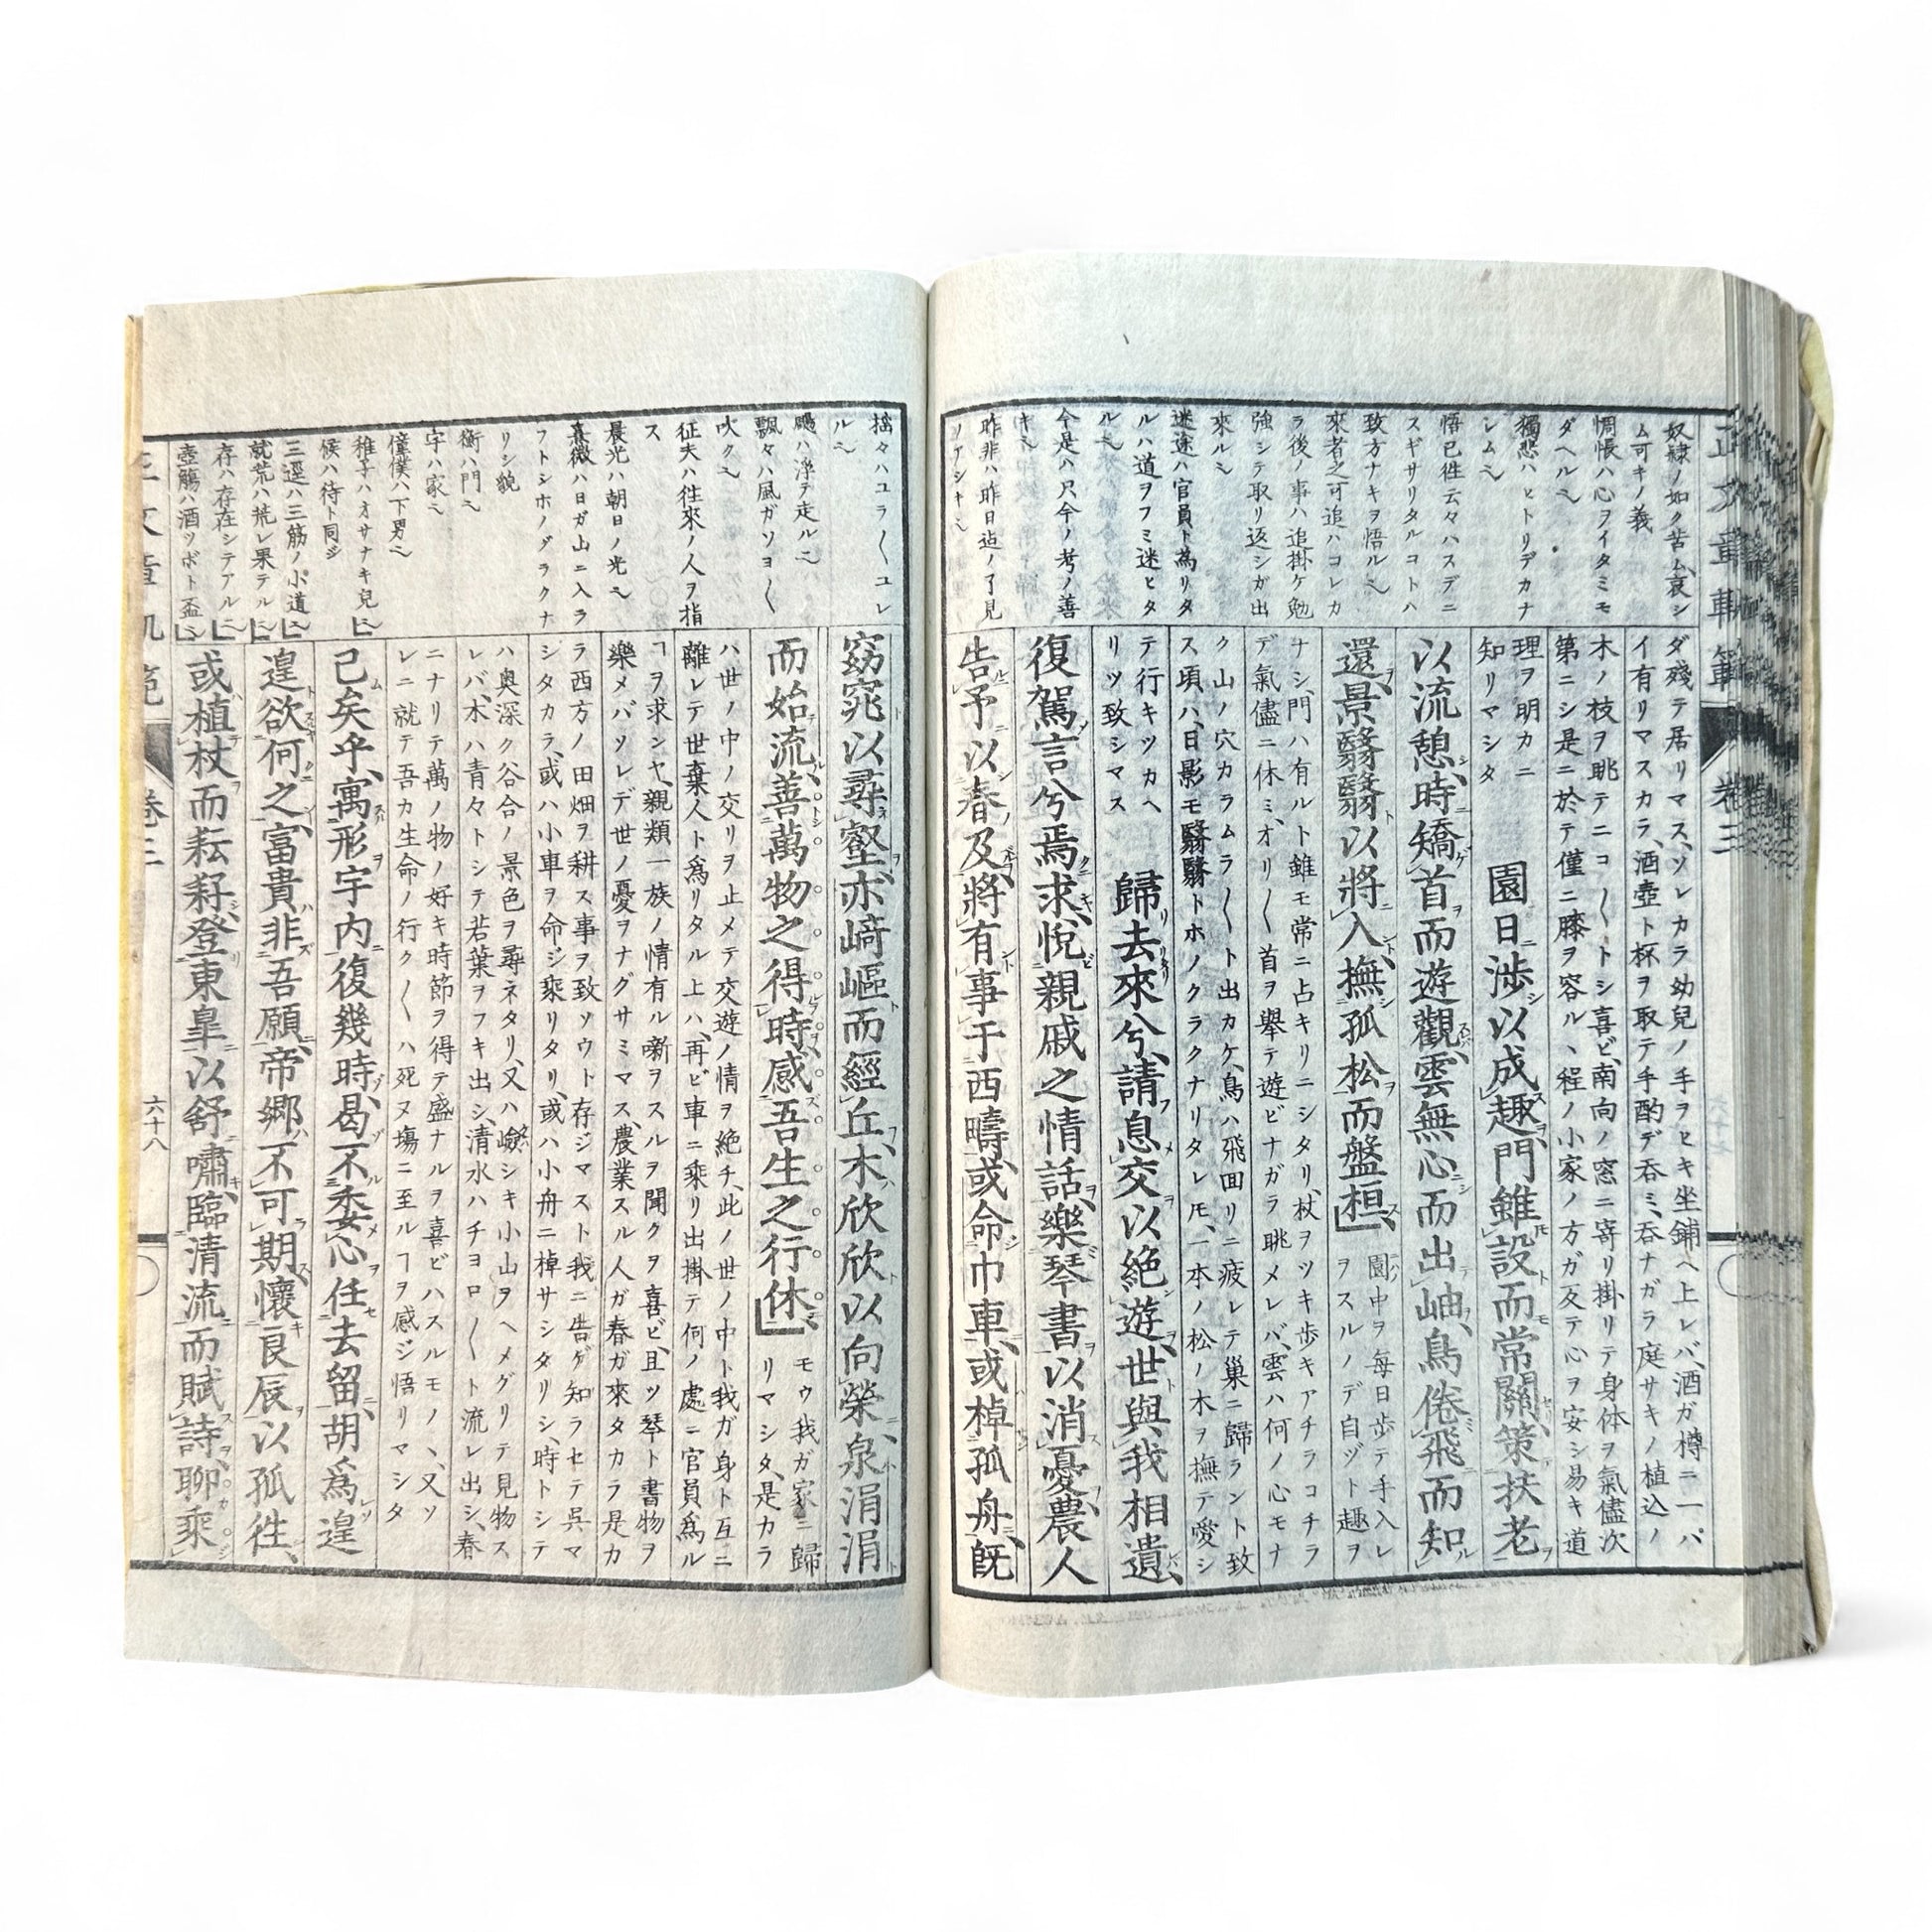 正文章軌範
卷三
奴隷ノ如ク苦ム、哀シ
ム可キノ義
惆悵ハ心ヲイタミモ
ダヘル也
獨悲ハヒトリデカナ
シム也
悟已徃云々ハスデニ
スギサリタルコトハ
致方ナキヲ悟ル也
來者之可追ハコレカ
ラ後ノ事ハ追掛ケ勉
強シテ取リ返シガ出
來ル也
迷途ハ官員ト為リタ
ルハ道ヲフミ迷ヒタ
ル也
今是ハ只今ノ考ノ善
キ也
昨非ハ昨日迠ノ了見
ワアシキ也
ダ殘テ居リマス、ソレカラ幼兒ノ手ヲヒキ坐鋪ヘ上レバ、酒ガ樽ニ一パ
イ有リマスカラ、酒壺ト杯ヲ取テ手酌デ呑ミ、呑ナガラ庭サキノ植込ノ
木ノ枝ヲ眺テニコ〱トシ喜ビ、南向ノ窓ニ寄リ掛リテ身体ヲ氣儘次
第ニシ是ニ於テ僅ニ膝ヲ容ル、程ノ小家ノ方ガ反テ心ヲ安シ易キ道
理ヲ明カニ
知リマシタ
園日渉以成趣、門雖設而常關、策扶老
以流憩、時矯首而遊觀、雲無心而出岫、鳥倦飛而知
還、景翳翳以將入、撫孤松而盤桓、
園中ヲ毎日歩テ手入レ
ヲスルノデ自ヅト趣ヲ
ナシ、門ハ有ルト雖モ常ニ占キリニシタリ、杖ヲツキ歩キアチラコチラ
デ氣儘ニ休ミ、オリ〱首ヲ擧テ遊ビナガラ眺メレバ、雲ハ何ノ心モナ
ク山ノ穴カラムラ〱ト出カケ、鳥ハ飛回リニ疲レテ巢ニ歸ラント致
ス頃ハ、日影モ翳翳トホノクラクナリタレ𪜈、一本ノ松ノ木ヲ撫テ愛シ
テ行キツカヘ
リツ致シマス
歸去來兮、請息交以絶遊、世與我相遺、
復駕言兮焉求、悅親戚之情話、樂琴書以消憂、農人
告予以春及、將有事于西疇、或命巾車、或棹孤舟、既
搖々ハユラ〱ユレ
ル也
颺ハ浮テ走ル也
飄々ハ風ガソヨ〱
吹ク也
征夫ハ徃來ノ人ヲ指
ス
晨光ハ朝日ノ光也
熹微ハ日ガ山ニ入ラ
フトシホノグラクナ
リシ貌
衡ハ門也
宇ハ家也
僮僕ハ下男也
稚子ハオサナキ兒也
候ハ待ト同ジ
三逕ハ三筋ノ小道也
就荒ハ荒レ果テル也
存ハ存在シテアル也
壺觴ハ酒ツボト盃也
窈窕以尋壑、亦崎嶇而經丘、木欣欣以向榮、泉涓涓
而始流、善萬物之得時、感吾生之行休、
モウ我ガ家ニ歸
リマシタ、是カラ
ハ世ノ中ノ交リヲ止メテ交遊ノ情ヲ絶チ、此ノ世ノ中ト我ガ身ト互ニ
離レテ世棄人ト爲リタル上ハ、再ビ車ニ乘リ出掛テ何ノ處ニ官員爲ル
ヿヲ求ンヤ、親類一族ノ情有ル噺ヲスルヲ聞クヲ喜ビ、且ツ琴ト書物ヲ
樂メバソレデ世ノ憂ヲナグサミマス、農業スル人ガ春ガ來タカラ是カ
ラ西方ノ田畑ヲ耕ス事ヲ致ソウト存ジマスト我ニ告ゲ知ラセテ呉マ
シタカラ、或ハ小車ヲ命ジ乘リタリ、或ハ小舟ニ棹サシタリシ、時トシテ
ハ奥深ク谷合ノ景色ヲ尋ネタリ、又ハ嶮シキ小山ヲヘメグリテ見物ス
レバ、木ハ青々トシテ若葉ヲフキ出シ、清水ハチヨロ〱ト流レ出シ、春
ニナリテ萬ノ物ノ好キ時節ヲ得テ盛ナルヲ喜ビハスルモノヽ、又ソ
レニ就テ吾カ生命ノ行ク〱ハ死ヌ塲ニ至ルヿヲ感ジ悟リマシタ
已矣乎、寓形宇内復幾時、曷不委心任去留、胡爲遑
遑欲何之、富貴非吾願、帝郷不可期、懷良辰以孤徃、
或植杖而耘耔、登東皐以舒嘯、臨清流而賦詩、聊乘
正文章軌範
卷三
六十八